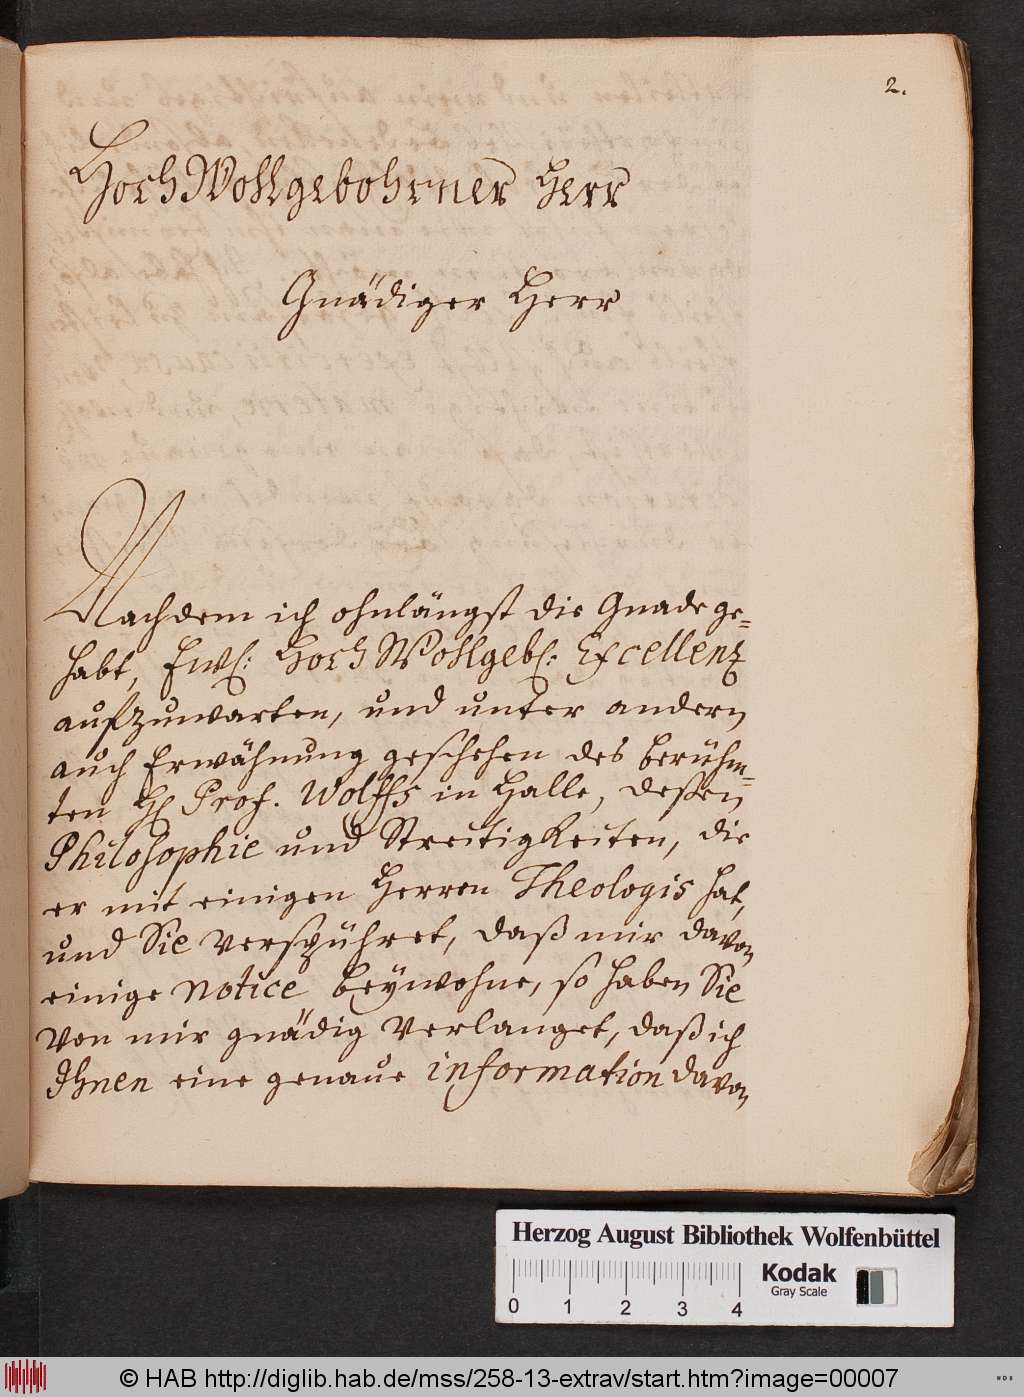 2.
HochWohlgebohrner Herr
Gnädiger Herr
Nachdem ich ohnlängst die Gnade ge=
habt, Ew: HochWohlgeb: Excellenz
aufzuwarten, und unter andern
auch Erwähnung geschehen des berühm=
ten H Prof. Wolffs in Halle, deßen
Philosophie und Streitigkeiten, die
er mit einigen Herren Theologis hat,
und Sie verspühret, daß mir davon
einige notice beywohne, so haben Sie
von mir gnädig verlanget, daß ich
Ihnen eine genaue information davon
Herzog August Bibliothek Wolfenbüttel
Kodak
Gray Scale
0 1 2 3 4
© HAB http://diglib.hab.de/mss/258-13-extrav/start.htm?image=00007